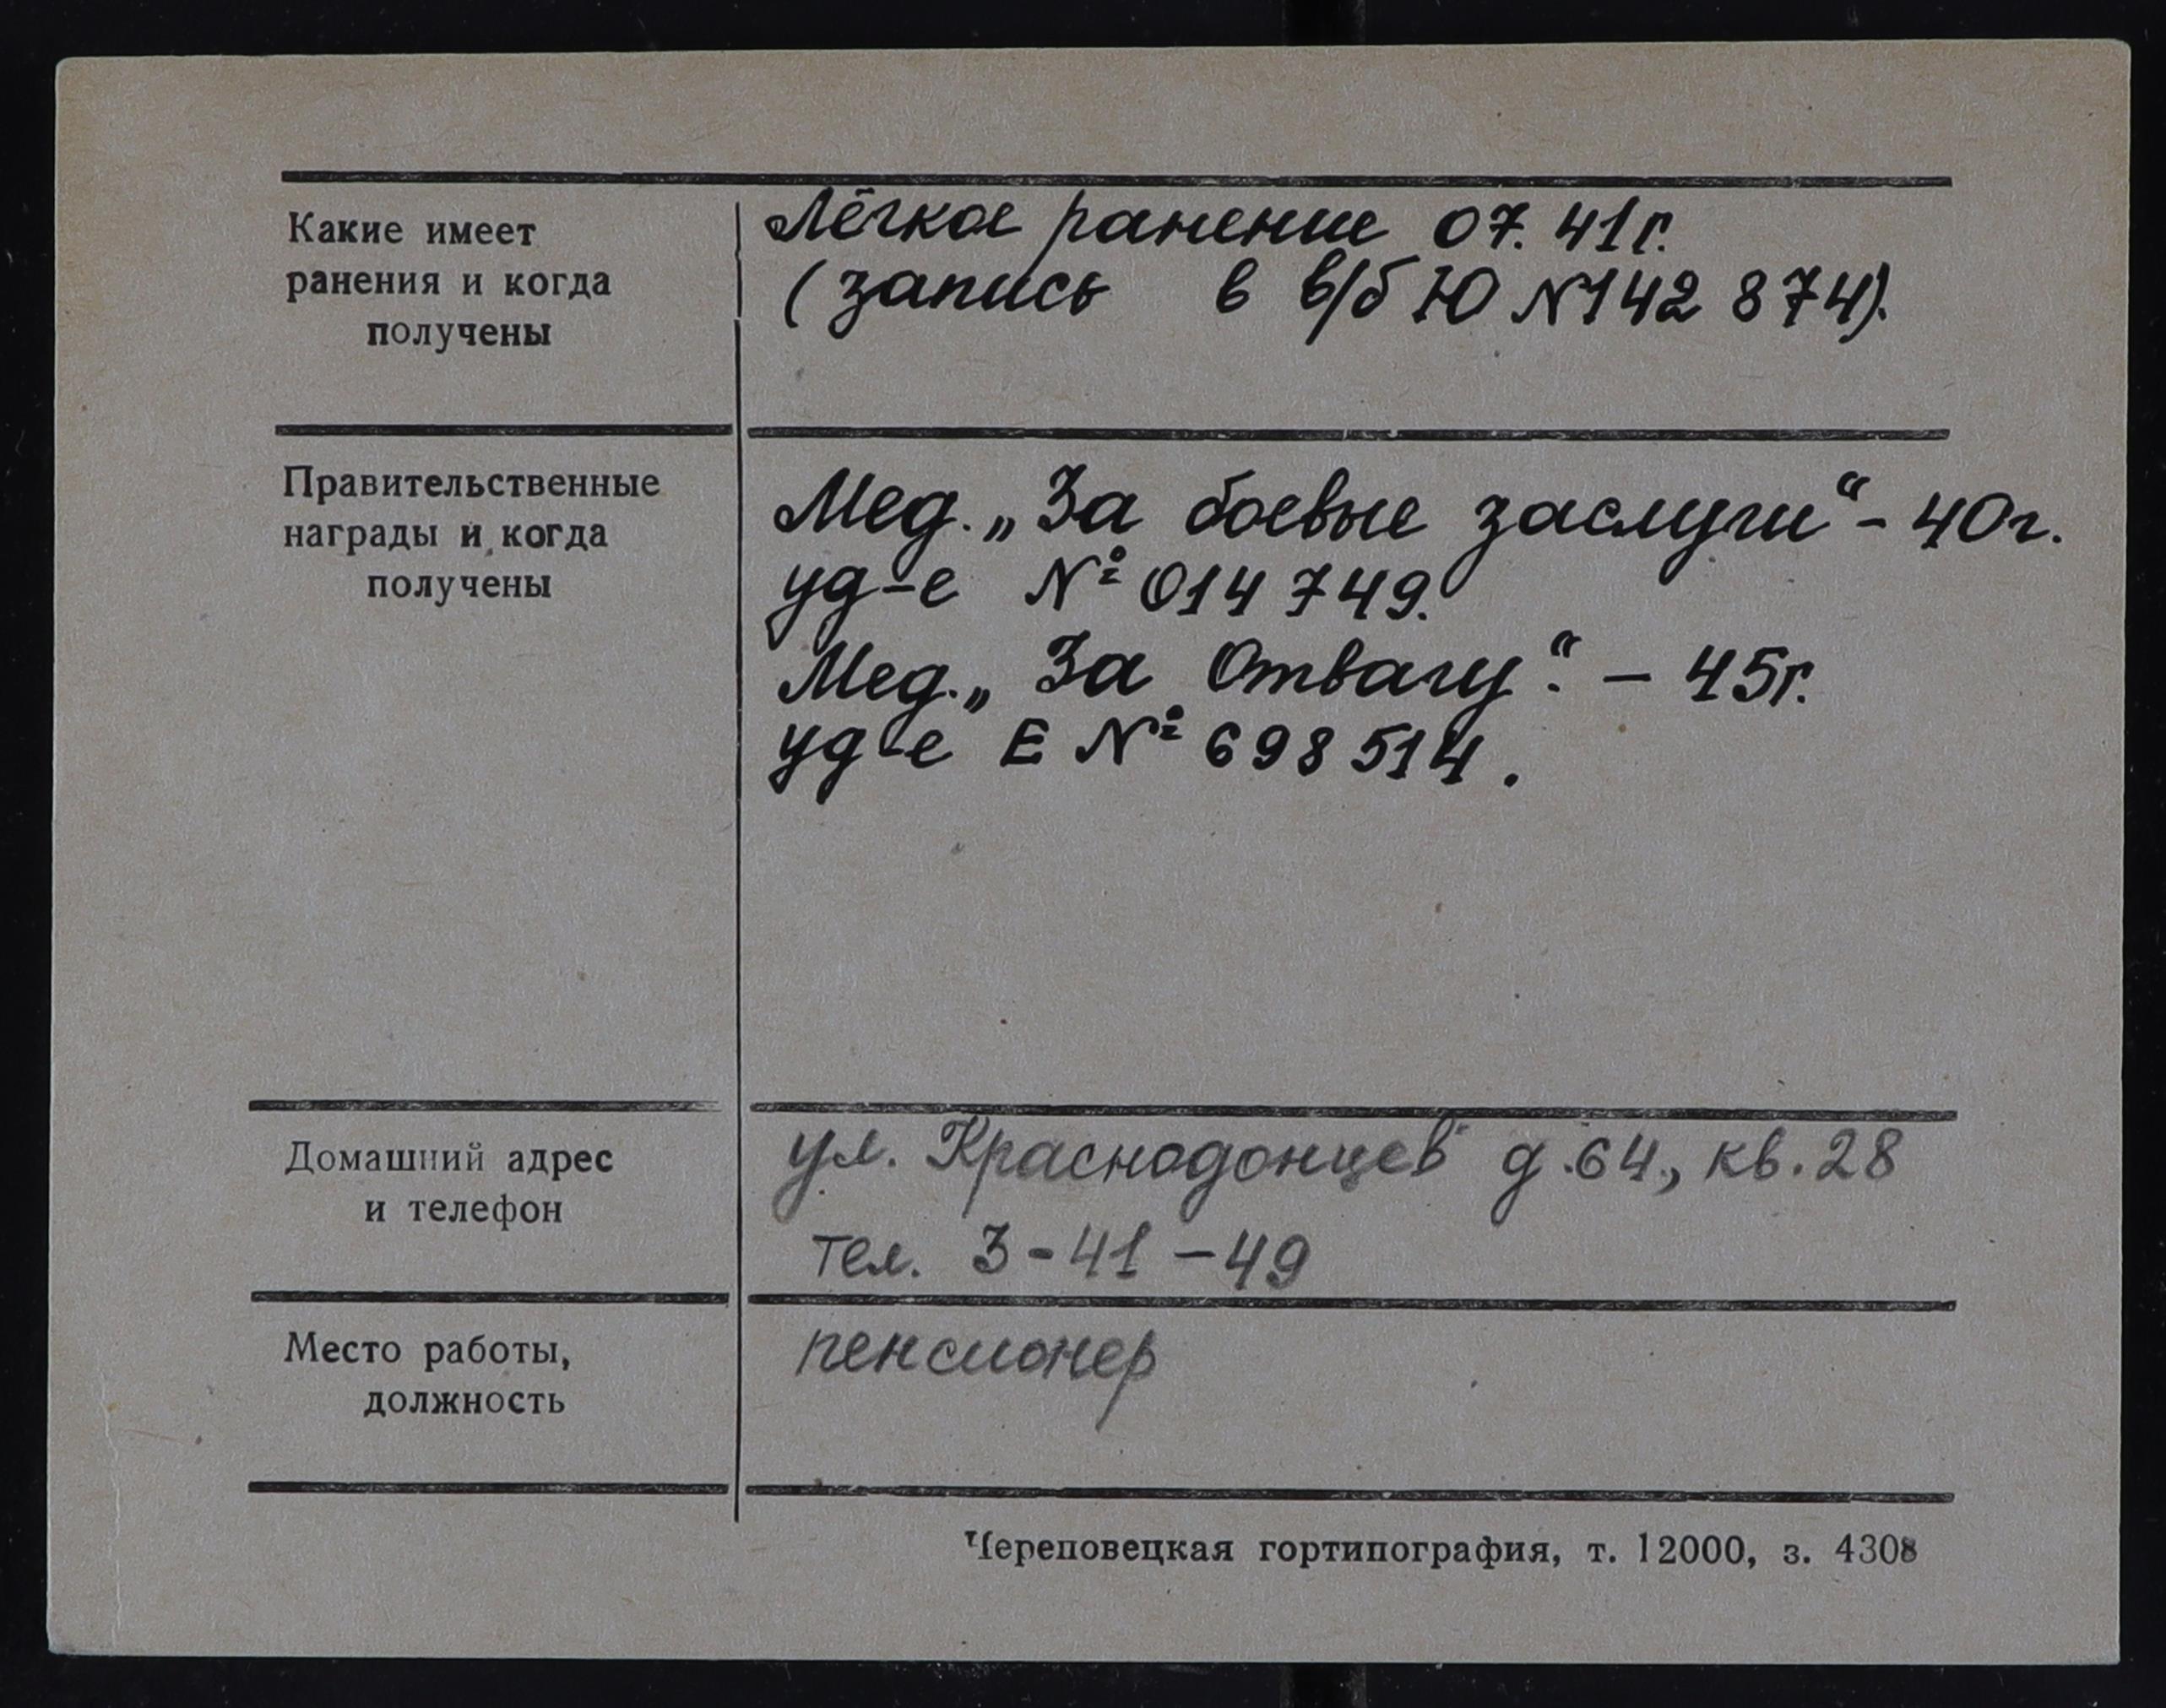 Какие имеет
ранения и когда
получены
Лёгкое ранение 07.41г.
(запись в в/б Ю №142 874).
Правительственные
награды и когда
получены
Мед. „За боевые заслуги“ - 40г.
уд-е № 014 749.
Мед. „За Отвагу“. - 45г.
уд-е Е № 698 514.
Домашний адрес
и телефон
ул. Краснодонцев д.64, кв.28
тел. 3-41-49
Место работы,
должность
пенсионер
Череповецкая гортипография, т. 12000, з. 4308